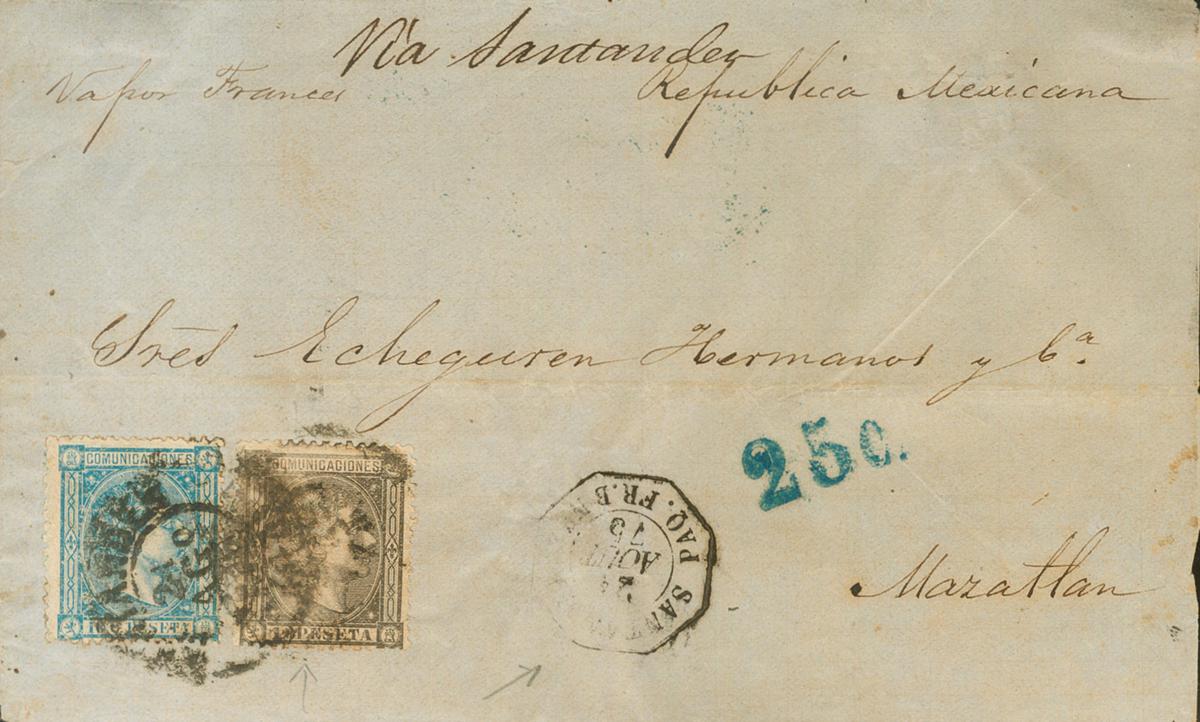 Via Santander
Vapor Frances
Republica Mexicana
Sres Echeguren Hermanos y Ca.
25 C.
COMUNICACIONES
COMUNICACIONES
PESETA
PESETA
PAQ. FR. B
AOUT
75
SANT
Mazatlan